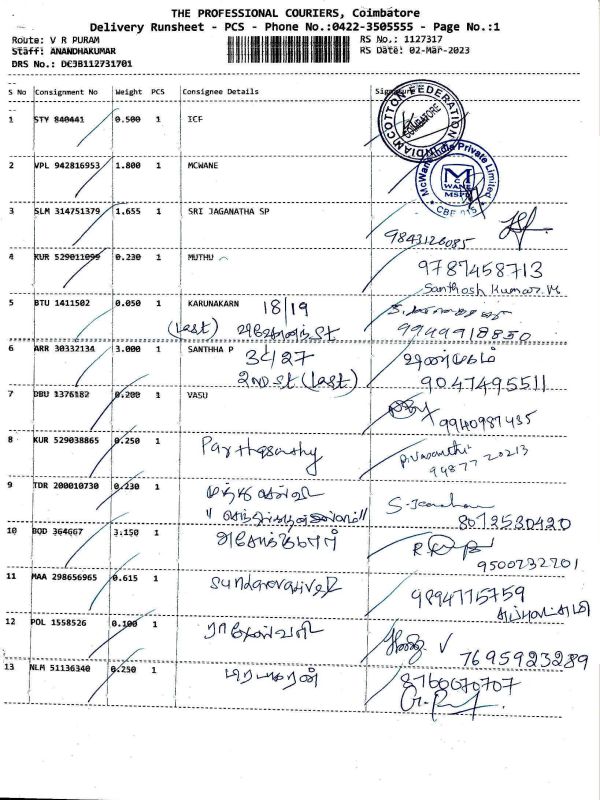 THE PROFESSIONAL COURIERS, Coimbatore
Delivery Runsheet - PCS - Phone No.:0422-3505555 - Page No.:1
Route: V R PURAM
RS No.: 1127317
Staff: ANANDHAKUMAR
RS Date: 02-Mar-2023
DRS No.: DEJB112731701
S No Consignment No Weight PCS Consignee Details Signature
INDIAN COTTON FEDERATION COIMBATORE
1 STY 840441 0.500 1 ICF
McWane India Private Limited
MCWANE
CBE
2 VPL 942816953 1.800 1 MCWANE
3 SLM 314751379 1.655 1 SRI JAGANATHA SP
9843126085
4 KUR 529011099 0.230 1 MUTHU
9787458713
Santhosh Kumar.M
5 BTU 1411502 0.050 1 KARUNAKARN 18/19
(Last)
9949918850
6 ARR 30332134 3.000 1 SANTHHA P 34/27
சண்முகம்
2nd st (Last) 9047495511
7 DBU 1376182 0.200 1 VASU
9940987435
8 KUR 529038865 0.250 1 Parthasarathy
P.Vasanthi
94877 20213
9 TDR 200010730 0.230 1
8012530420
10 BQD 364667 3.150 1
9500232201
11 MAA 298656965 0.615 1
9894775759
12 POL 1558526 0.100 1 ராஜேஸ்வரி
7695923289
13 NLM 51136340 0.250 1 பிரபாகரன்
8760070707